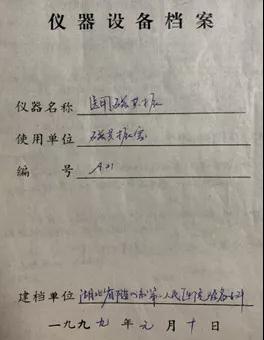 仪器设备档案
仪器名称 医用磁共振
使用单位 磁共振室
编 号 A01
建档单位 湖北省阳新县第一人民医院设备科
一九九九年元月十日